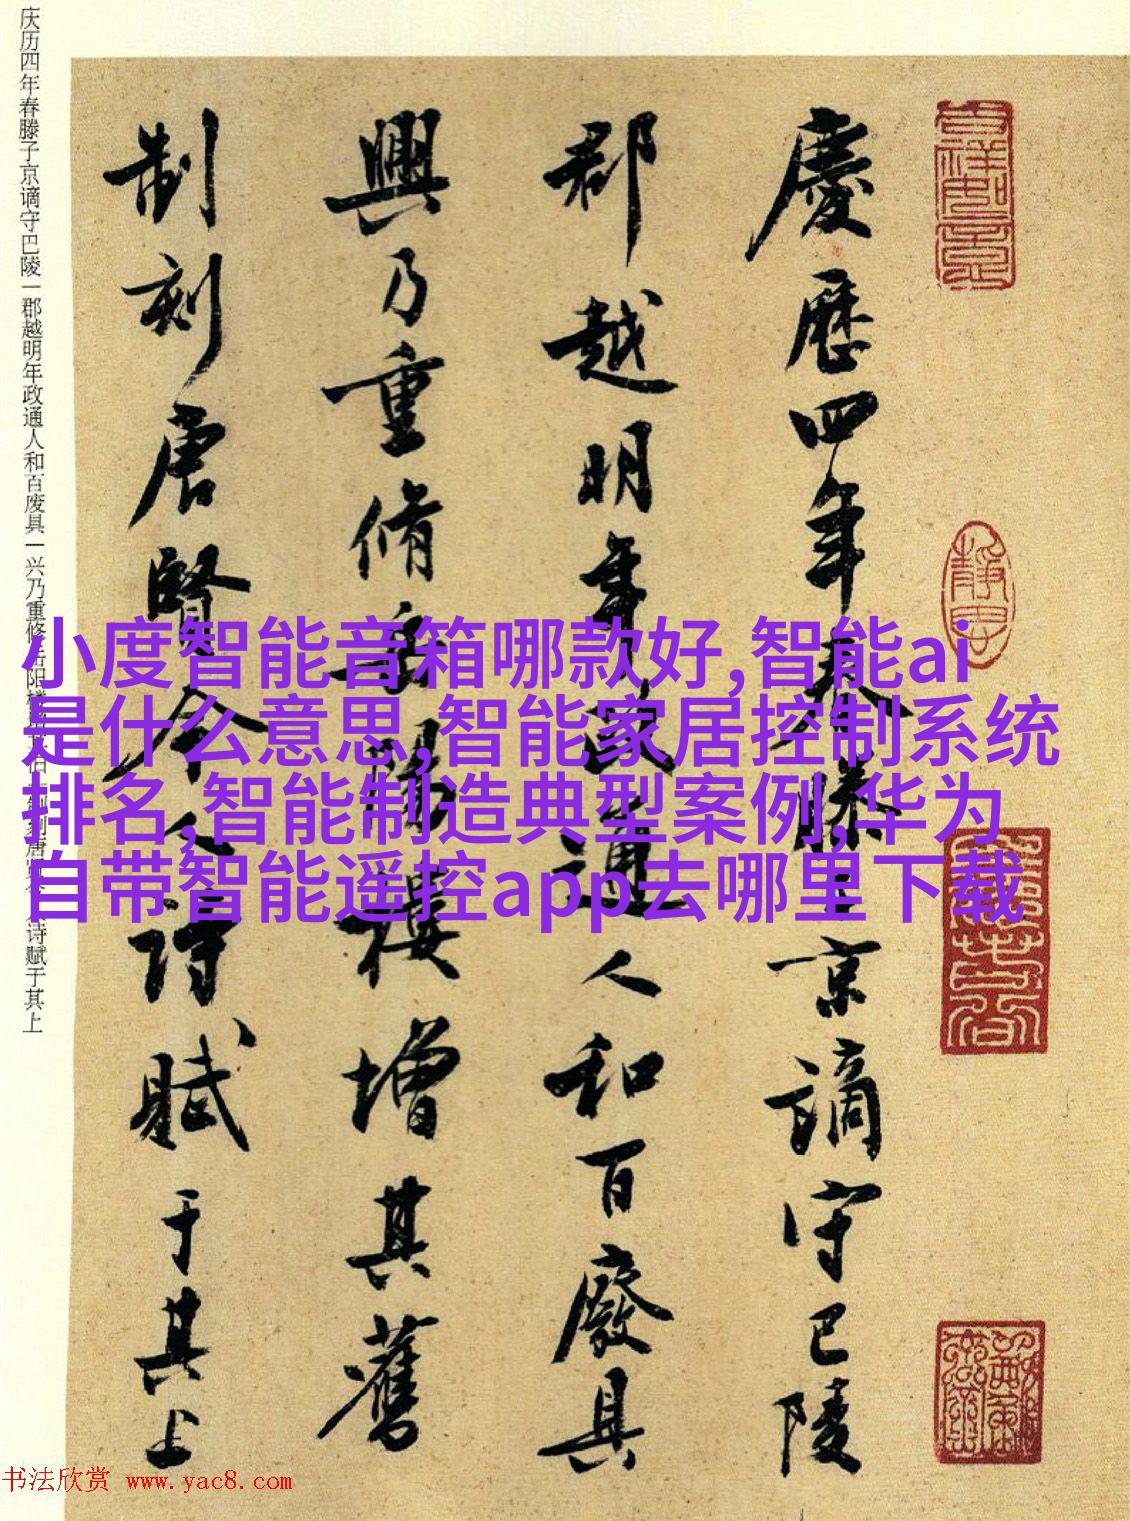 慶歷四年春滕子京謫守巴陵
郡越明年政通人和百廢具
興乃重脩岳陽樓增其舊
制刻唐賢今人詩賦于其上
庆历四年春滕子京谪守巴陵一郡越明年政通人和百废具一兴乃重修岳阳楼增其旧一制刻唐贤今人诗赋于其上
小度智能音箱哪款好,智能ai
是什么意思,智能家居控制系统
排名,智能制造典型案例,华为
自带智能遥控app去哪里下载
书法欣赏 www.yac8.com